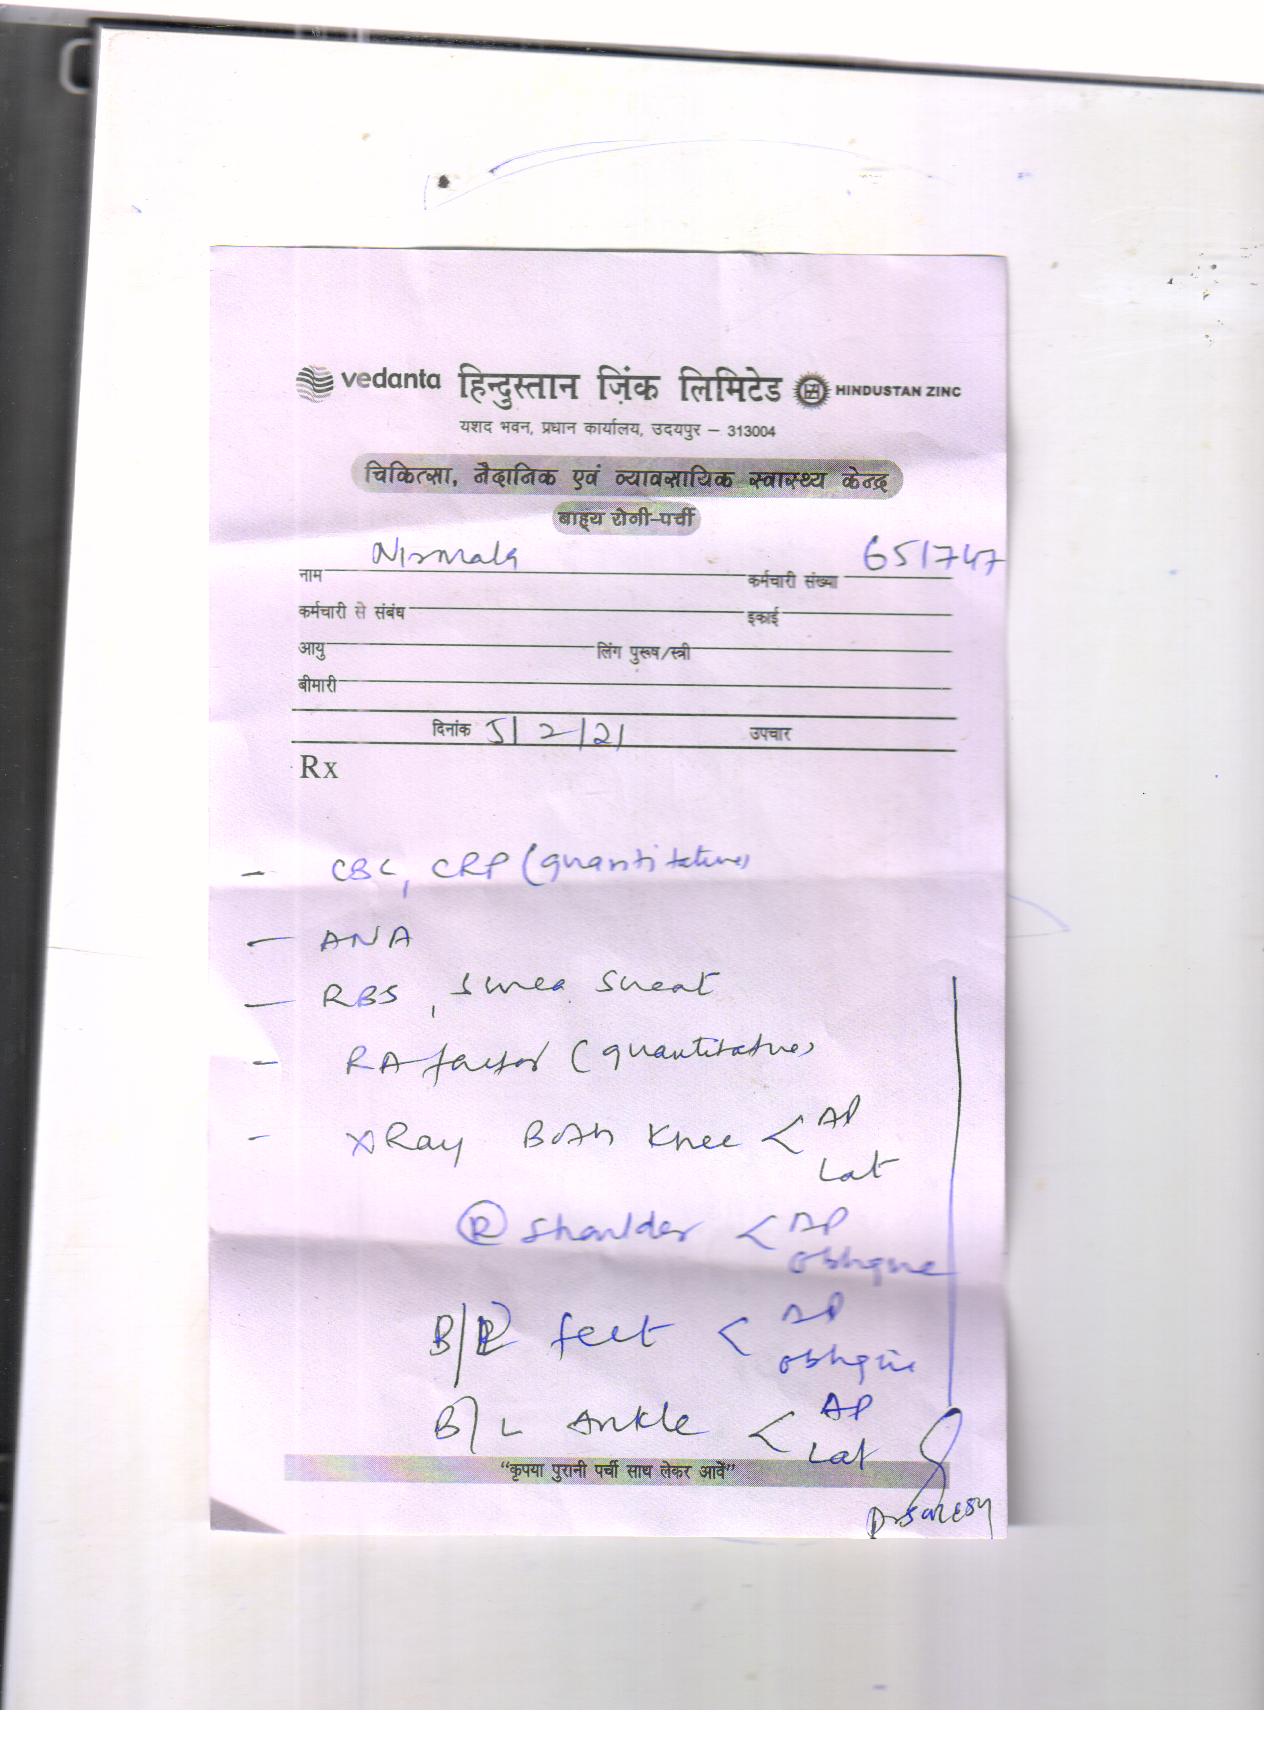 vedanta हिन्दुस्तान ज़िंक लिमिटेड HINDUSTAN ZINC
यशद भवन, प्रधान कार्यालय, उदयपुर – 313004
चिकित्सा, नैदानिक एवं व्यावसायिक स्वास्थ्य केन्द्र
बाह्य रोगी-पर्ची
नाम Nirmala कर्मचारी संख्या 651747
कर्मचारी से संबंध इकाई
आयु लिंग पुरूष/स्त्री
बीमारी
दिनांक 5/2/21 उपचार
Rx
- CBC, CRP (quantitative)
- ANA
- RBS, S urea S
- RA factor (quantitative)
- X Ray Both Knee < AP
Lat
(R) Shoulder < AP
oblique
B/L feet < AP
oblique
B/L Ankle < AP
Lat
"कृपया पुरानी पर्ची साथ लेकर आवें"